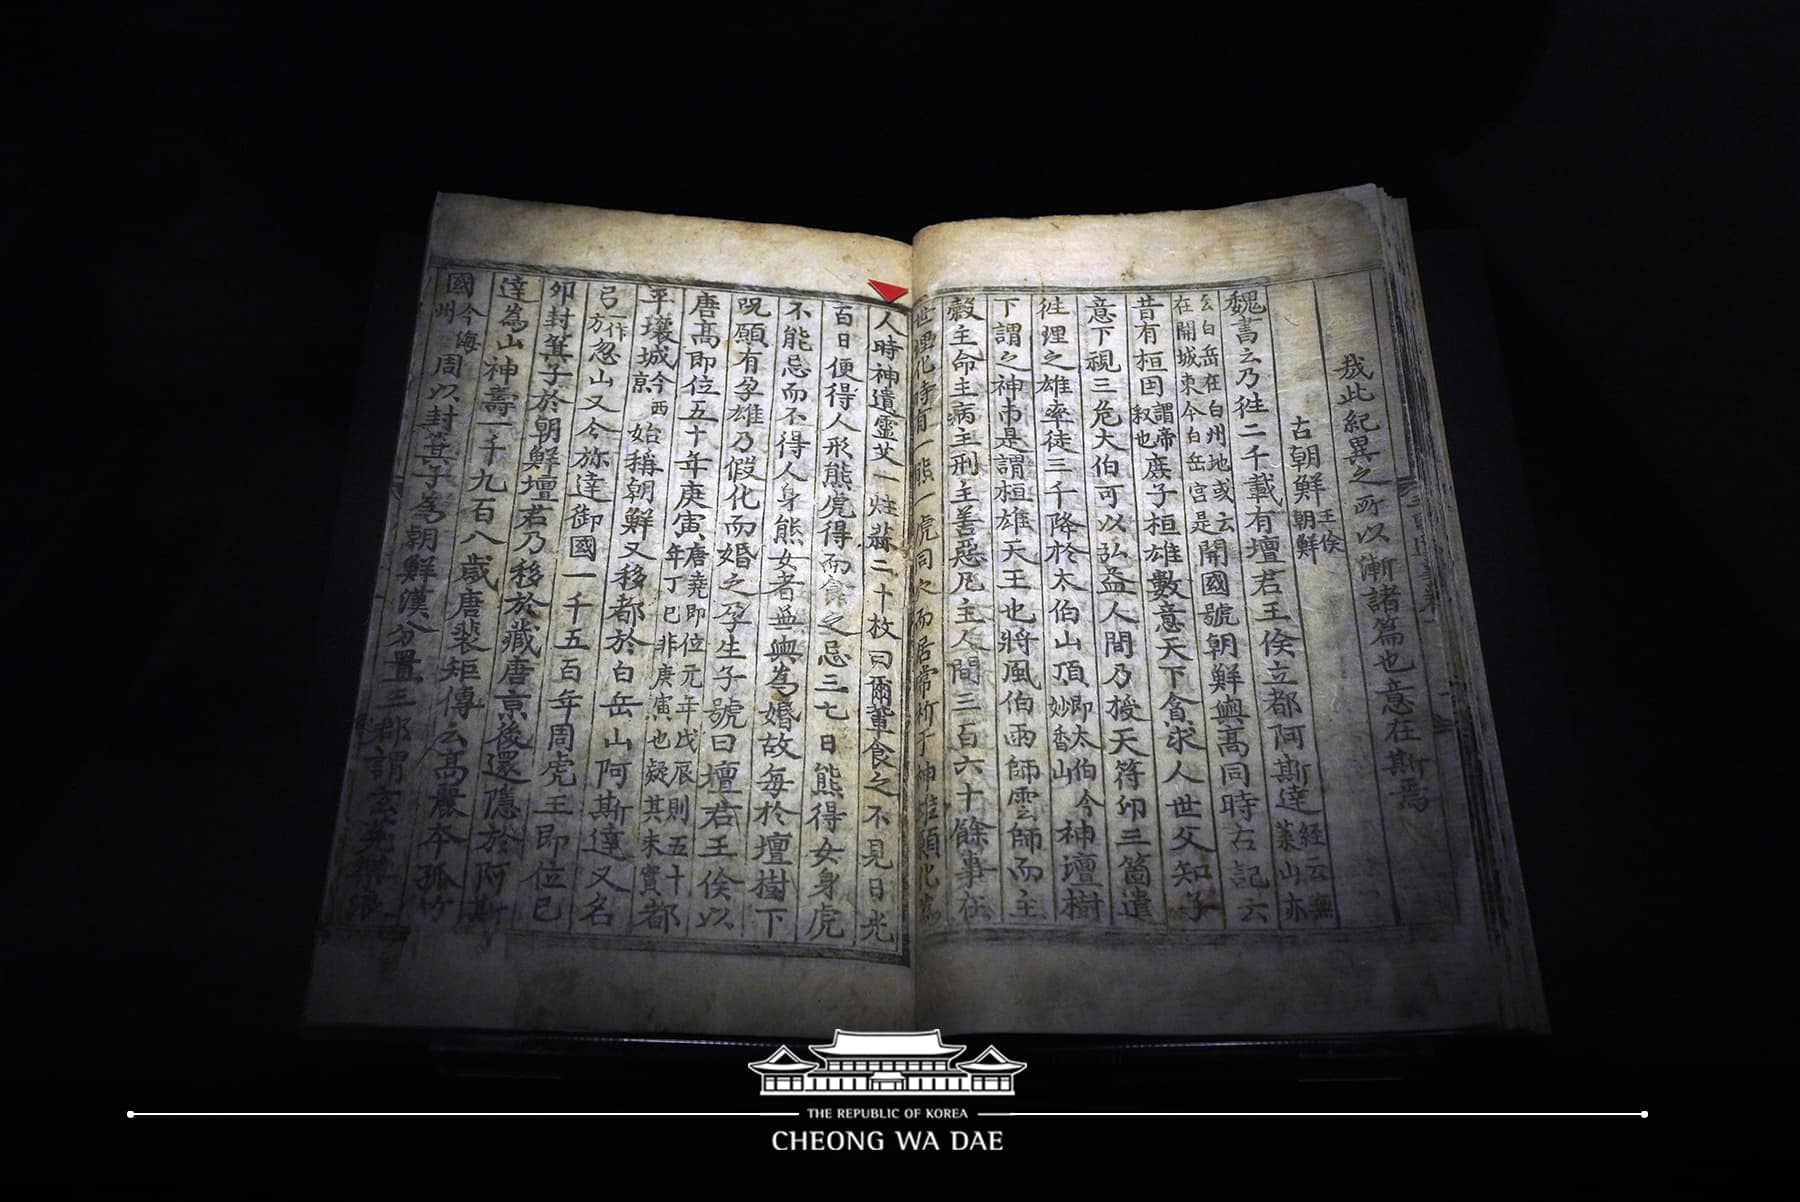 哉此紀異之所以漸諸篇也意在斯焉
古朝鮮王倹朝鮮
魏書云乃徃二千載有壇君王倹立都阿斯達經云無葉山亦
云白岳在白州地或云在開城東今白岳宮是開國號朝鮮與高同時古記云
昔有桓因謂帝釈也庶子桓雄數意天下貪求人世父知子
意下視三危大伯可以弘益人間乃授天符印三箇遣
徃理之雄率徒三千降於太伯山頂即太伯今妙香山神壇樹
下謂之神市是謂桓雄天王也將風伯雨師雲師而主
穀主命主病主刑主善惡凡主人間三百六十餘事在
世理化時有一熊一虎同穴而居常祈于神雄願化為
人時神遺靈艾一炷蒜二十枚曰爾輩食之不見日光
百日便得人形熊虎得而食之忌三七日熊得女身虎
不能忌而不得人身熊女者無與為婚故每於壇樹下
呪願有孕雄乃假化而婚之孕生子號曰壇君王倹以
唐高即位五十年庚寅唐堯即位元年戊辰則五十年丁巳非庚寅也疑其未實都
平壤城今西亰始稱朝鮮又移都於白岳山阿斯達又名
弓一作方忽山又今弥達御國一千五百年周虎王即位己
卯封箕子於朝鮮壇君乃移於藏唐亰後還隱於阿斯
達為山神壽一千九百八歲唐裴矩傳云高麗本孤竹
國今海州周以封箕子為朝鮮漢分置三郡謂玄菟樂浪
THE REPUBLIC OF KOREA
CHEONG WA DAE